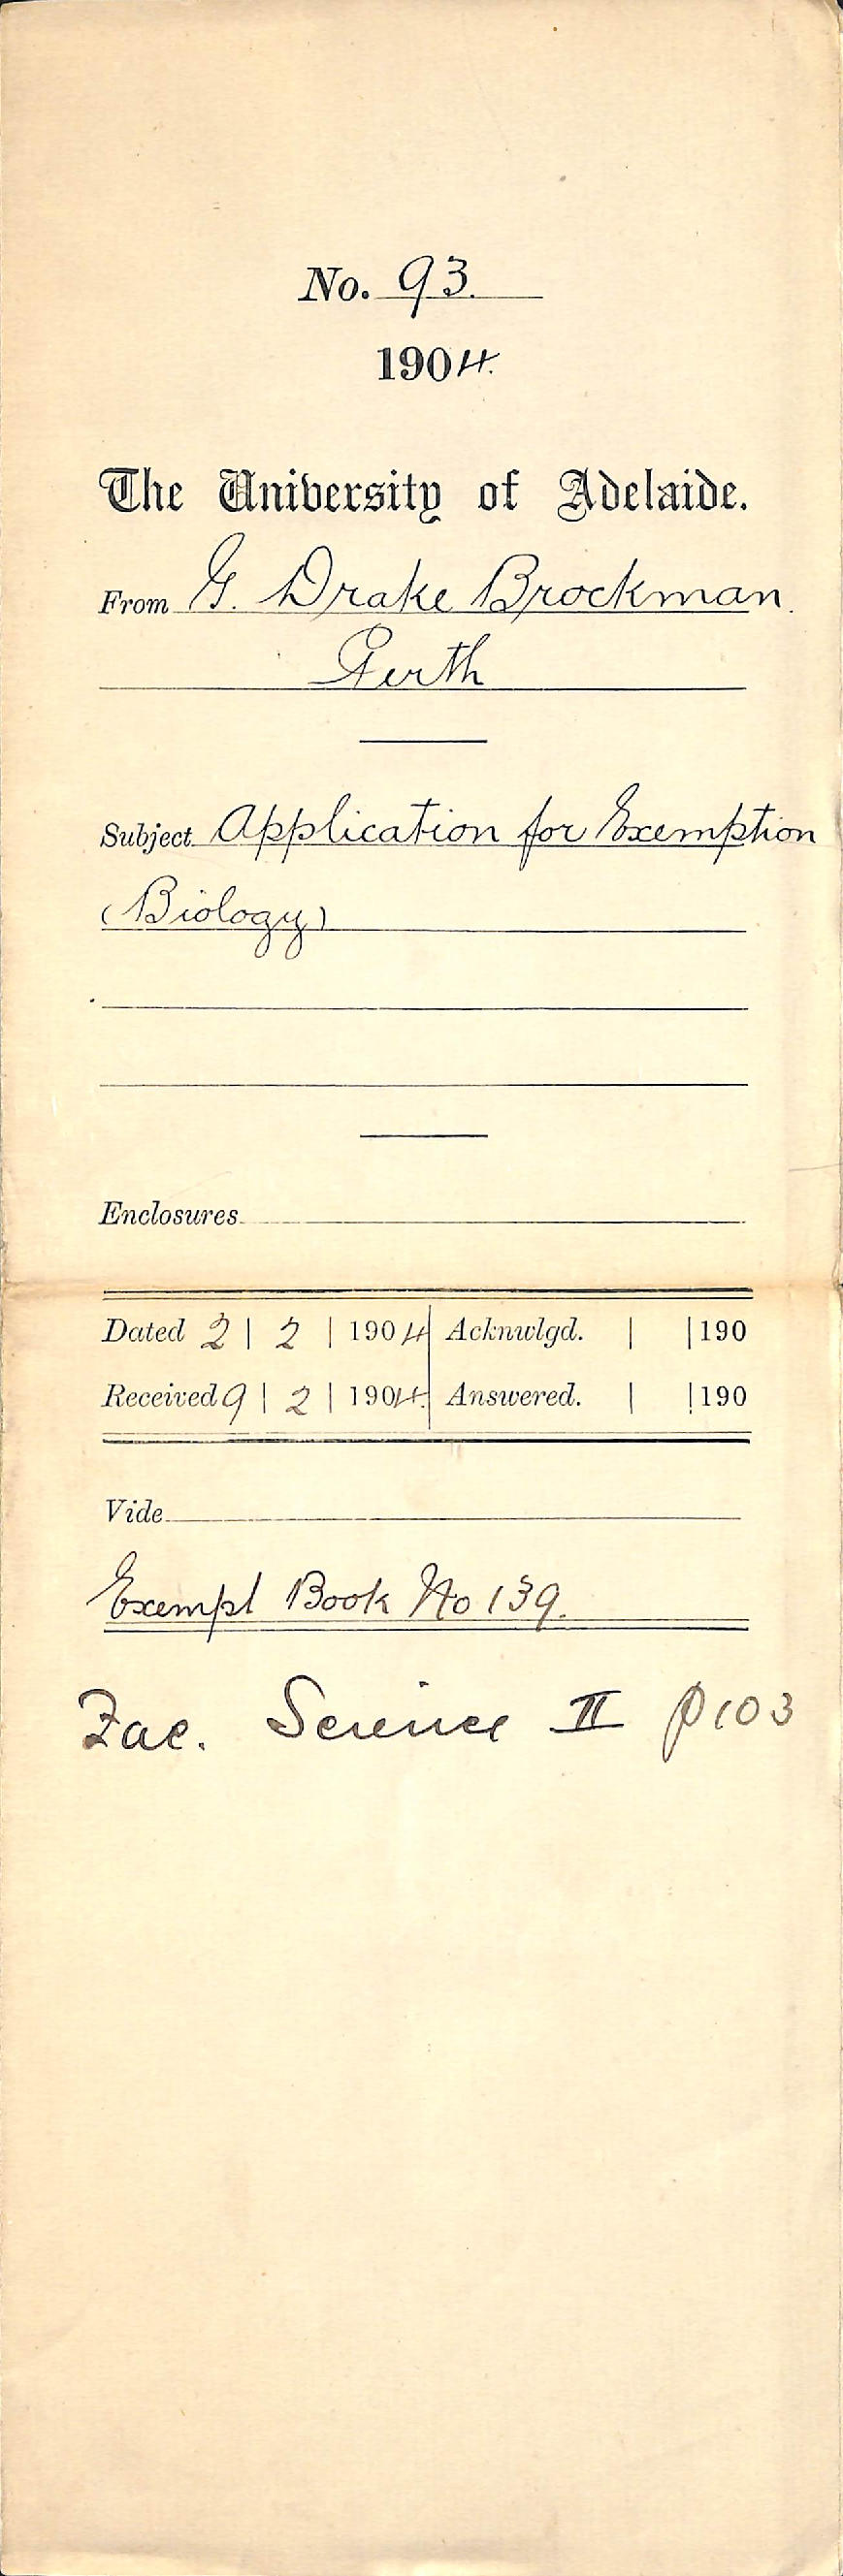 No. 93.
1904.
The University of Adelaide.
From G. Drake Brockman.
Perth
Subject Application for Exemption
(Biology)
Enclosures
Dated 2 | 2 | 1904 Acknwlgd. | | 190
Received 9 | 2 | 1904. Answered. | | 190
Vide
Exempt Book No 139.
Fac. Science II p103